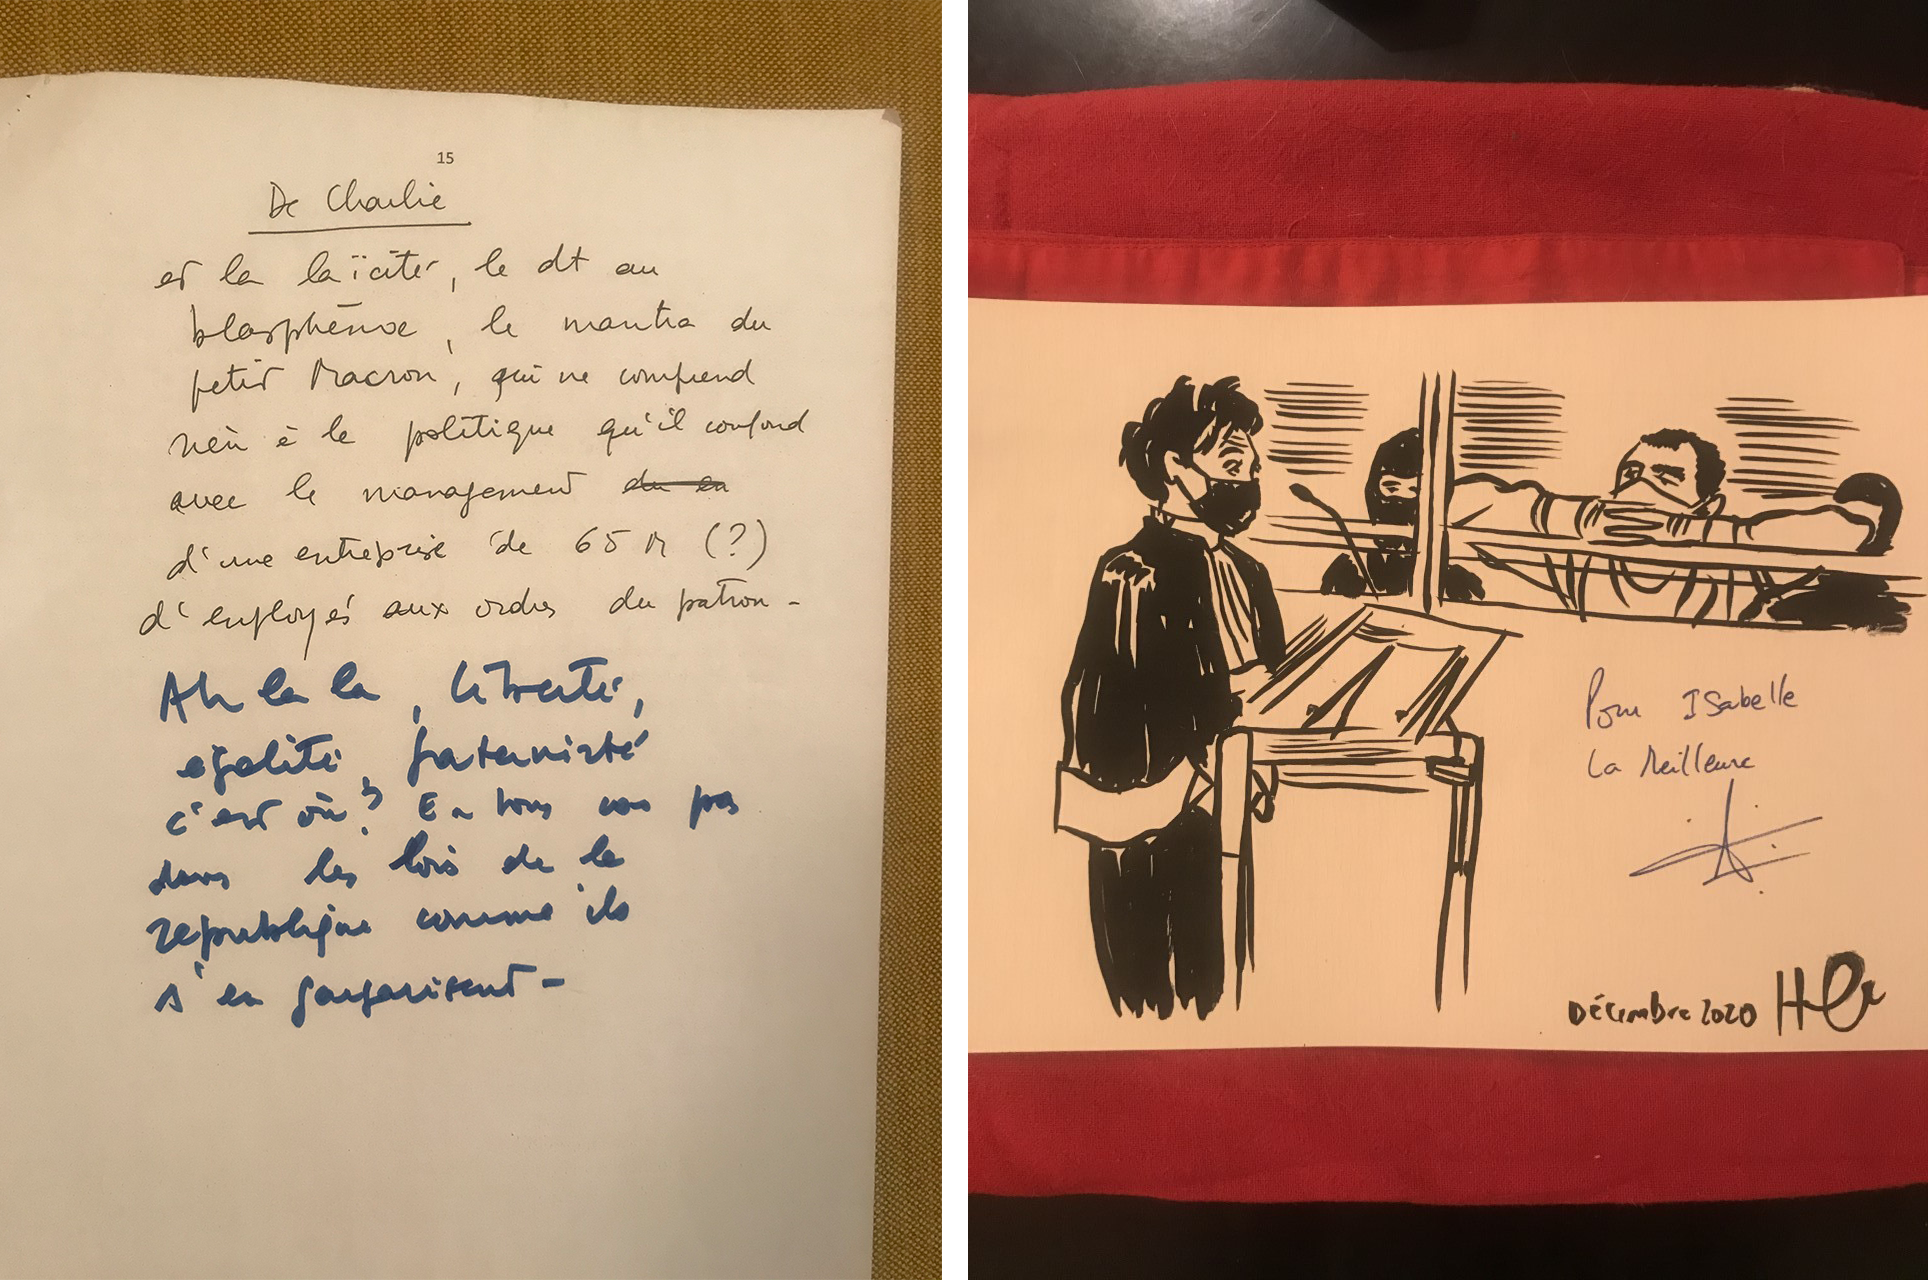 15
De Charlie
et la laïcité, le dt au
blasphème, le mantra du
petit Macron, qui ne comprend
rien à la politique qu'il confond
avec le management du en
d'une entreprise de 65 M (?)
d'employés aux ordres du patron -
Ah la la, liberté,
égalité, fraternité
c'est où ? En tous cas pas
dans les lois de la
république comme ils
s'en gargarisent -
Pour Isabelle
La Meilleure
Décembre 2020